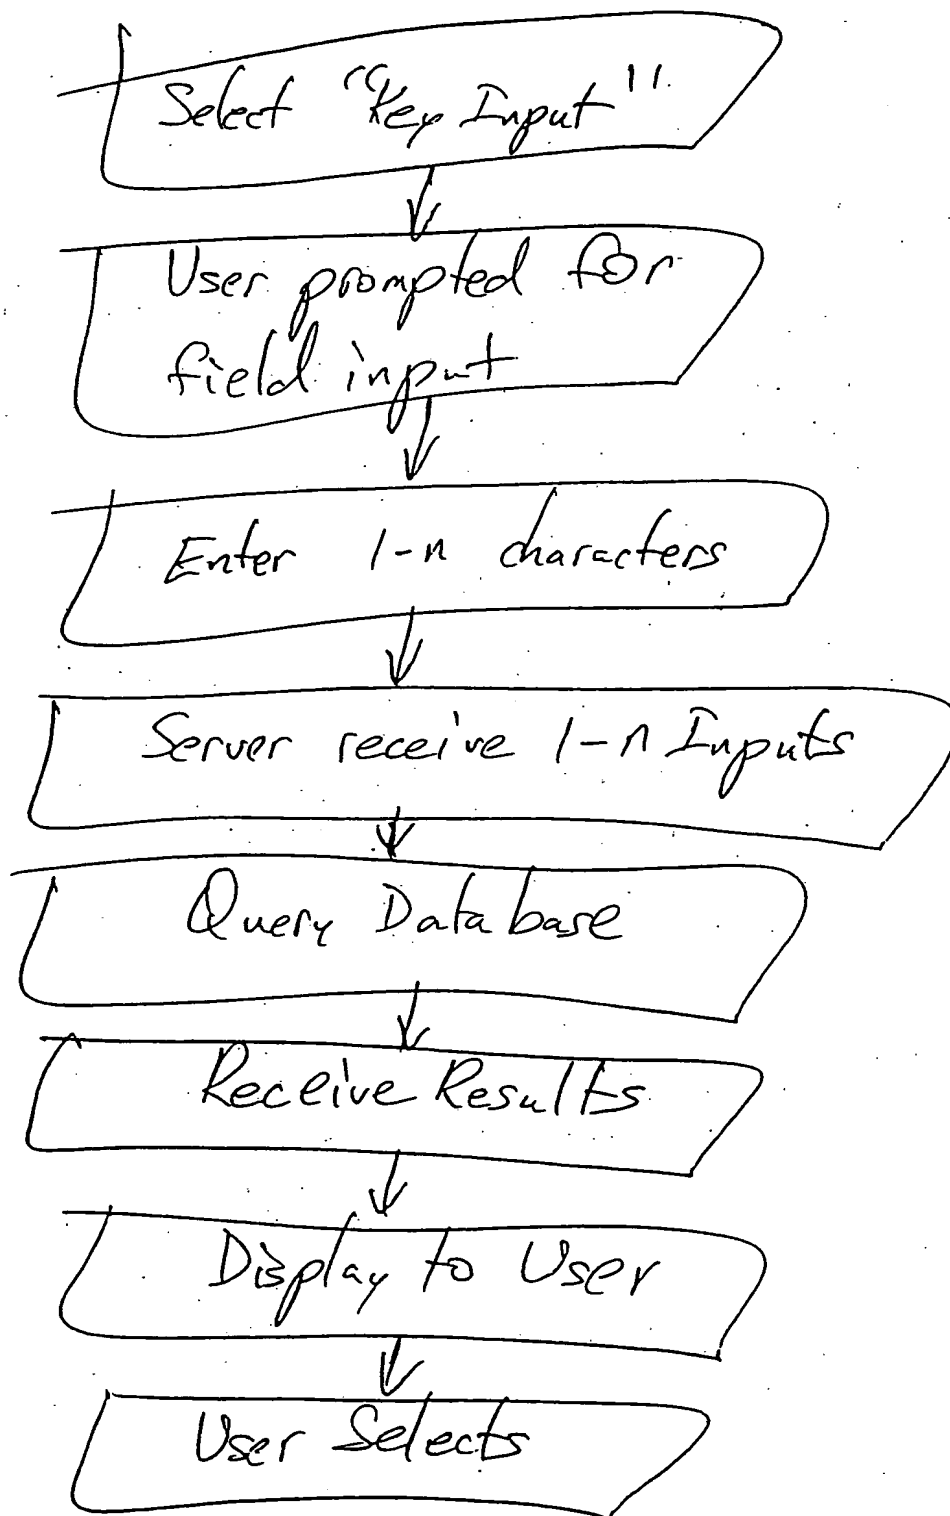 Select "Key Input"
User prompted for
field input
Enter 1-n characters
Server receive 1-n Inputs
Query Database
Receive Results
Display to User
User Selects